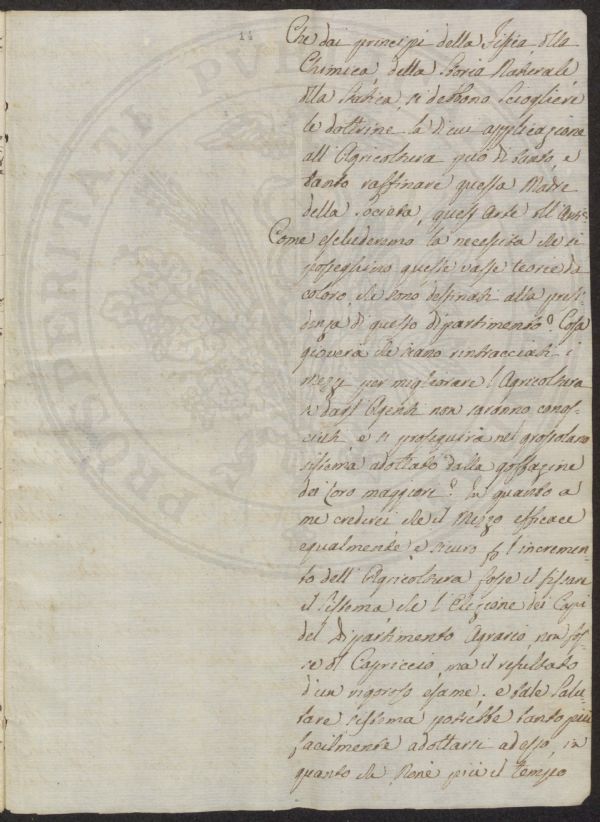 14
Che dai principj della Fisica, della
Chimica, della Storia Naturale,
della Statica, si debbono sciogliere
le dottrine la di cui applicazione
all'Agricoltura può di tanto, e
tanto raffinare questa Madre
della Società, quest'Arte dell'Arti.
Come escluderemo la necessità che si
posseghino queste vaste teorie da
coloro, che sono destinati alla presi
denza di questo dipartimento? Cosa
gioverà che siano rintracciati i
Mezzi per migliorare l'Agricoltura
se dagl'Agenti non saranno conos=
ciuti, e si proseguirà nel grossolano
sistema adottato dalla goffagine
dei loro maggiori? In quanto a
me crederei, che il Mezzo efficace
egualmente, e sicuro p l'incremen
to dell'Agricoltura fosse il fissare
il sistema che l'Elezione dei Capi
del Dipartimento Agrario, non fos=
se di Capriccio, ma il resultato
d'un rigoroso esame, e tale Salu
tare sistema potrebbe tanto più
facilmente adottarsi adesso, in
quanto che Non è più il tempo
PROSPERITATI PUB